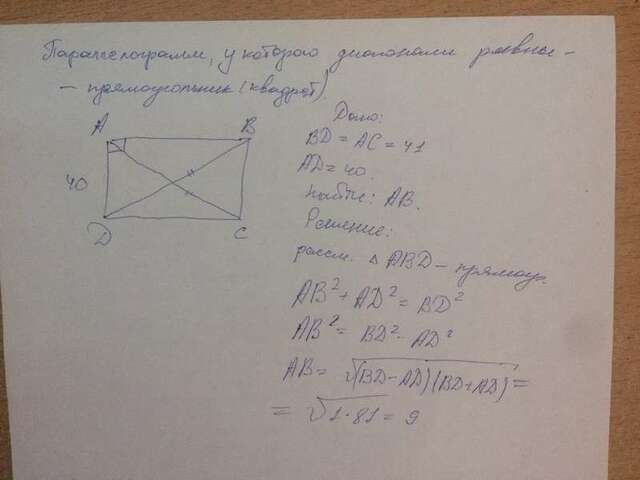 Параллелограмм, у которого диагонали равны -
- прямоугольник (квадрат).
A B
40
D C
Дано:
BD = AC = 41
AD = 40.
Найти: AB.
Решение:
рассм. △ ABD - прямоуг.
AB² + AD² = BD²
AB² = BD² - AD²
AB = √(BD-AD)(BD+AD) =
= √1·81 = 9